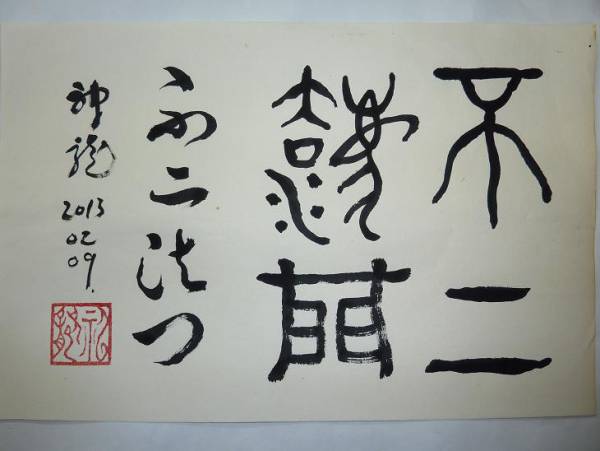 不二
灋門
不二法门
神龍
2013
02
09.